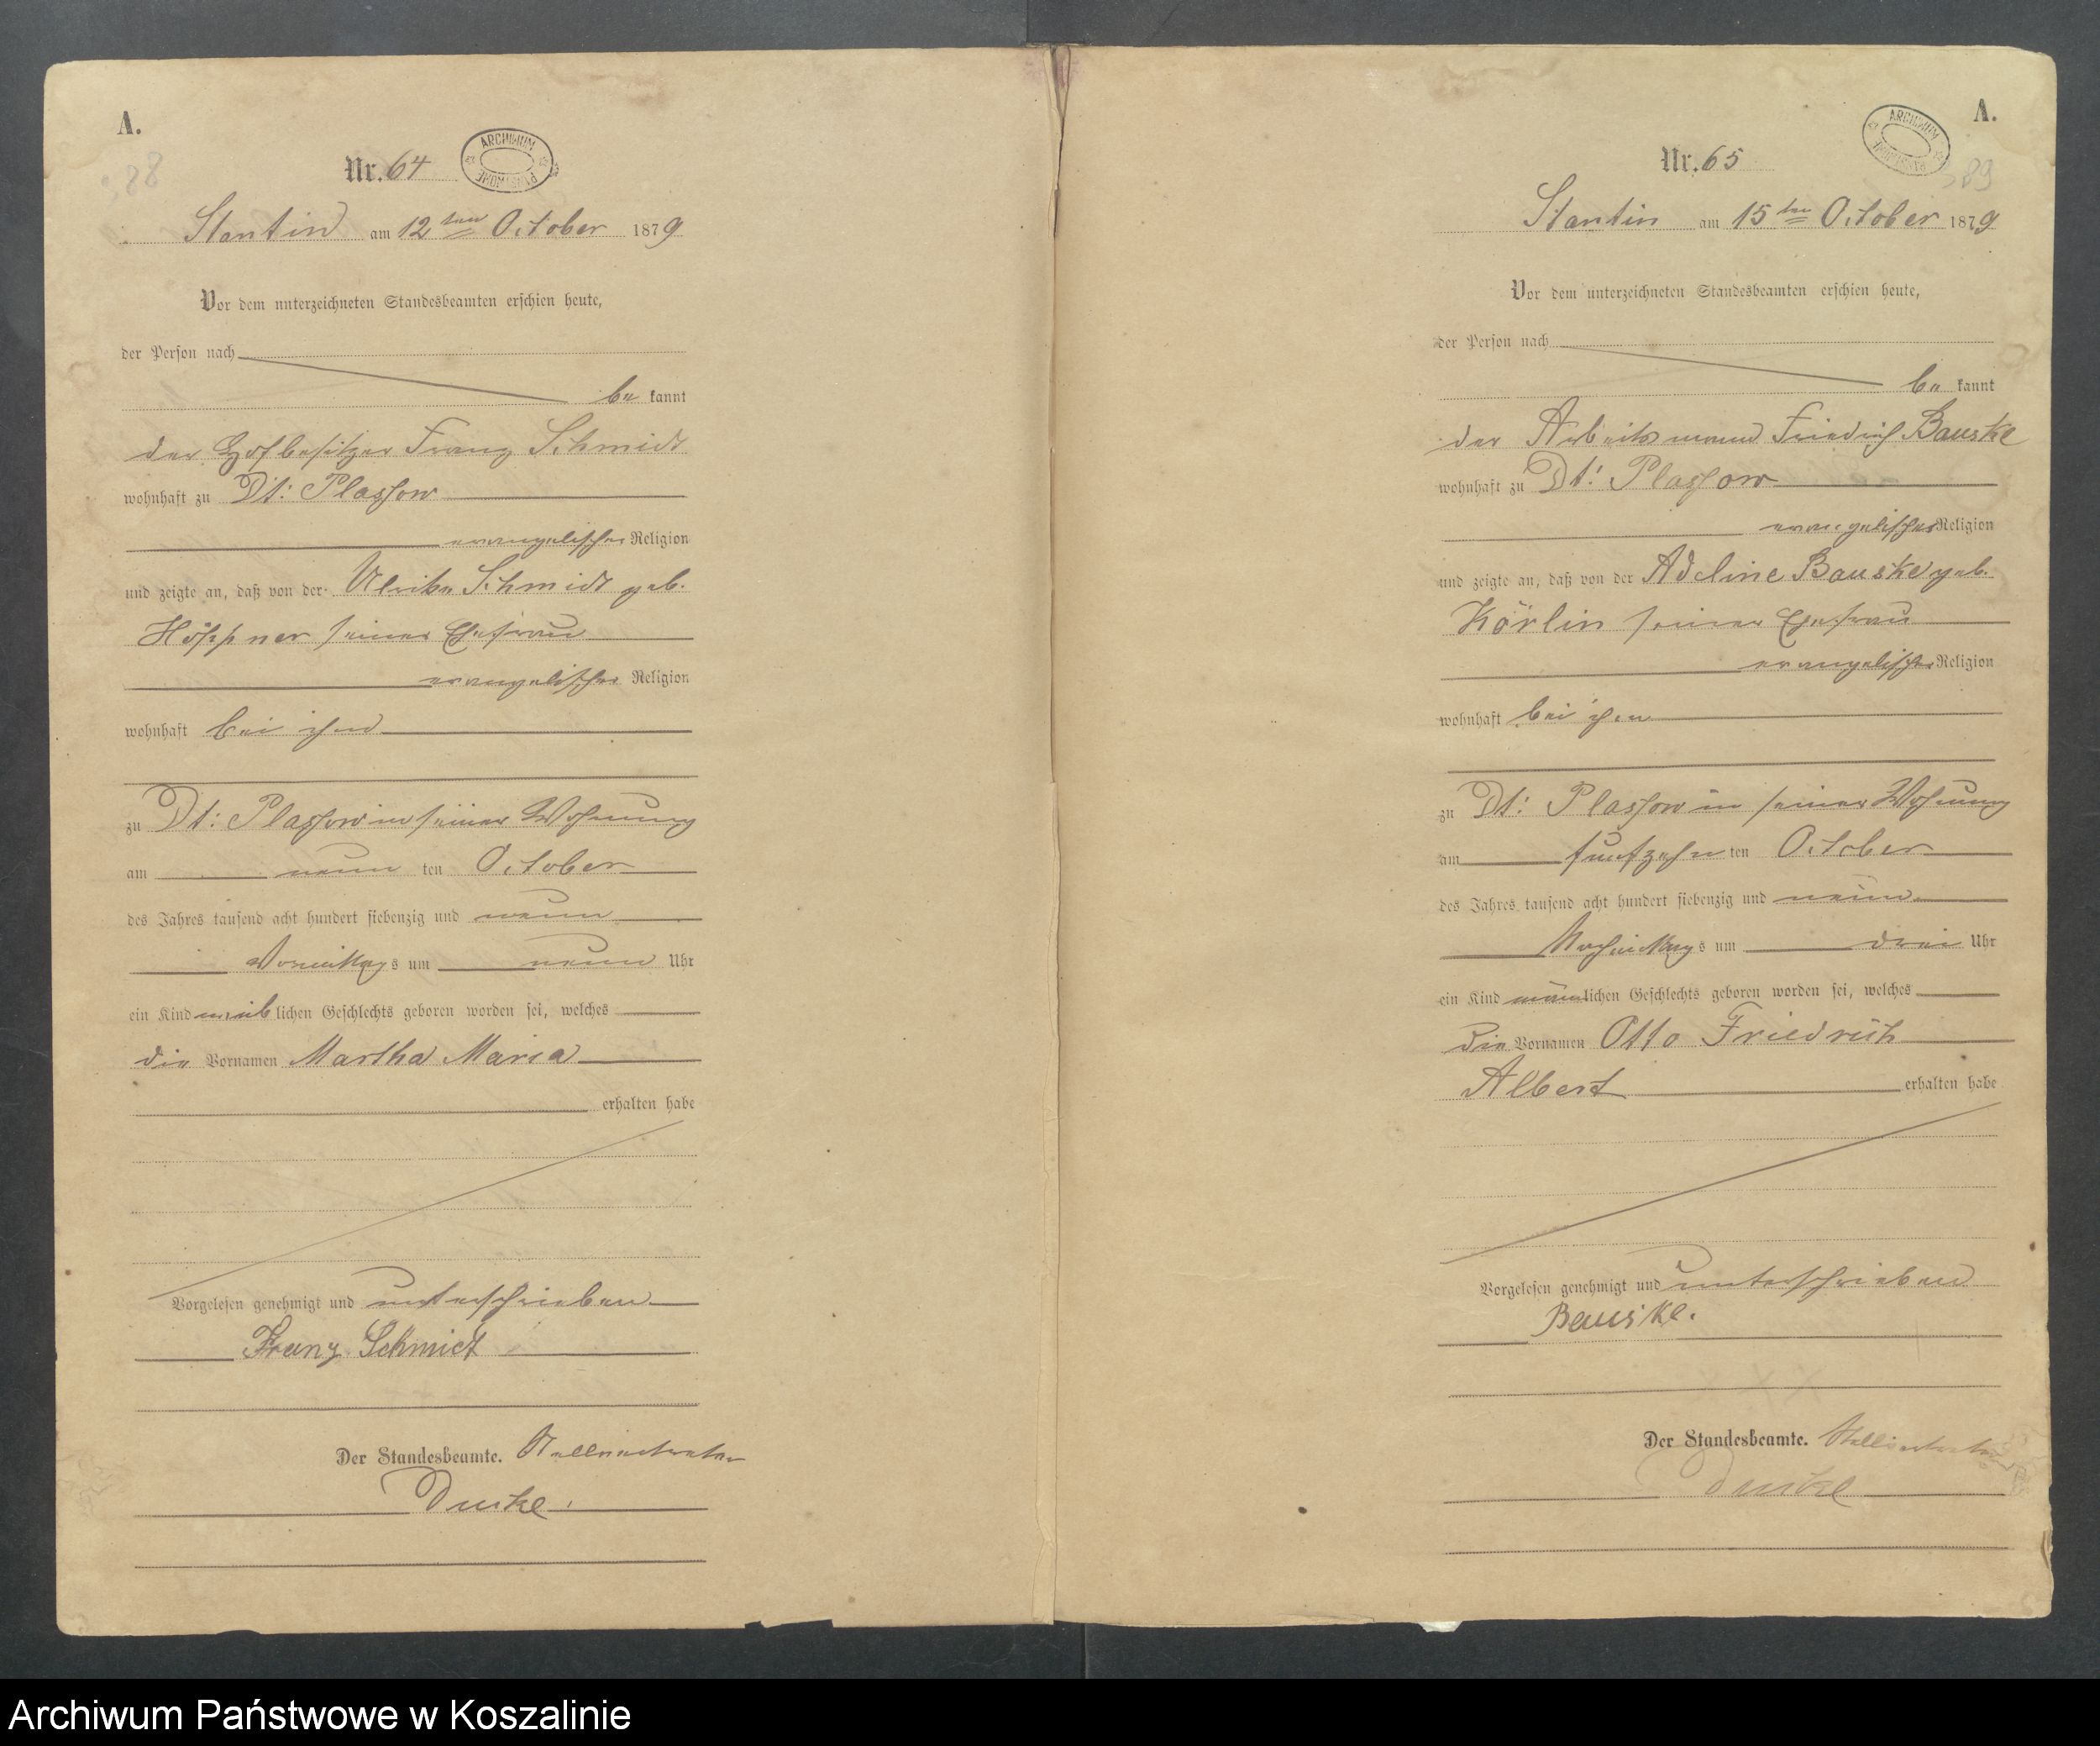 A.
88
Nr. 64
ARCHIWUM PAŃSTWOWE
Stantin am 12ten October 1879
Vor dem unterzeichneten Standesbeamten erschien heute,
der Person nach
be kannt
der Hofbesitzer Franz Schmidt
wohnhaft zu Dt: Plassow
evangelischer Religion
und zeigte an, daß von der Ulrike Schmidt geb.
Höppner seiner Ehefrau
evangelischer Religion
wohnhaft bei ihm
zu Dt: Plassow in seiner Wohnung
am neun ten October
des Jahres tausend acht hundert siebenzig und neun
Vormittags um neun Uhr
ein Kind weiblichen Geschlechts geboren worden sei, welches
die Vornamen Martha Maria
erhalten habe
Vorgelesen genehmigt und unterschrieben
Franz Schmidt
Der Standesbeamte. Stellvertreter
A.
89
Nr. 65
ARCHIWUM PAŃSTWOWE
Stantin am 15ten October 1879
Vor dem unterzeichneten Standesbeamten erschien heute,
der Person nach
be kannt
der Arbeitsmann Friedrich Bauske
wohnhaft zu Dt: Plassow
evangelischer Religion
und zeigte an, daß von der Adeline Bauske geb.
Körlin seiner Ehefrau
evangelischer Religion
wohnhaft bei ihm
zu Dt: Plassow in seiner Wohnung
am funfzehn ten October
des Jahres tausend acht hundert siebenzig und neun
Nachmittags um drei Uhr
ein Kind männlichen Geschlechts geboren worden sei, welches
die Vornamen Otto Friedrich
Albert erhalten habe
Vorgelesen genehmigt und unterschrieben
Bauske.
Der Standesbeamte. Stellvertreter
Archiwum Państwowe w Koszalinie